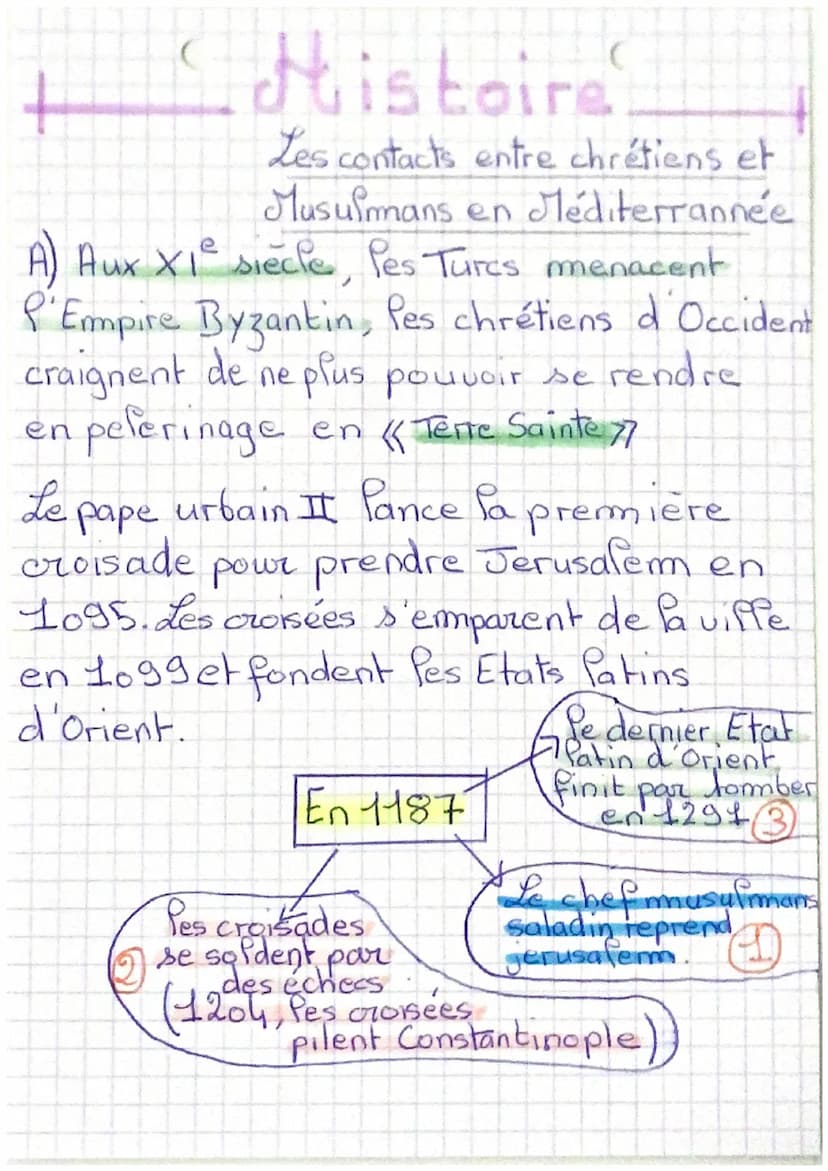 Histoire
Les contacts entre chrétiens et
Musulmans en Méditerrannée
A) Aux XIe siècle, les Turcs menacent
l'Empire Byzantin, les chrétiens d'Occident
craignent de ne plus pouvoir se rendre
en pelerinage en « Terre Sainte »
Le pape urbain II lance la première
croisade pour prendre Jerusalem en
1095. Les croisées s'emparent de la ville
en 1099 et fondent les Etats latins
d'Orient.
En 1187
Le chef musulmans
saladin reprend
jerusalem. 1
les croisades
2 se soldent par
des échecs
(1204, les croisées
pilent Constantinople)
le dernier Etat
latin d'Orient
finit par tomber
en 1291 3